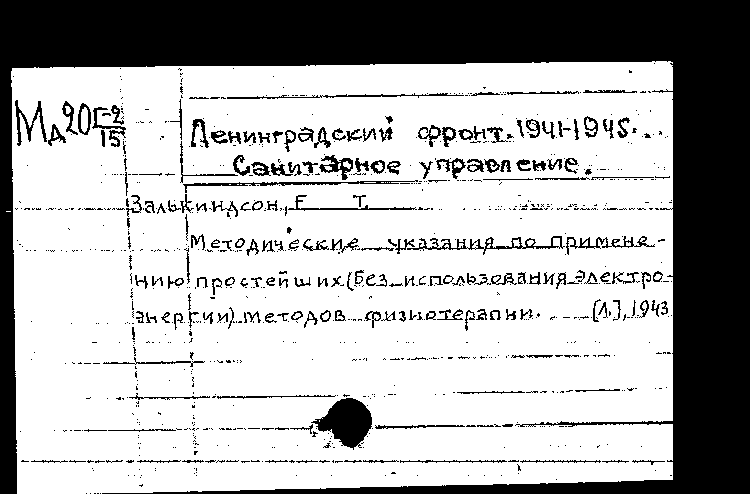 Мд20 Г-2/15
Ленинградский фронт. 1941-1945...
Санитарное управление.
Залькиндсон, Е Т.
Методические указания по примене-
нию простейших (без использования электро-
энергии) методов физиотерапии. [Л.], 1943